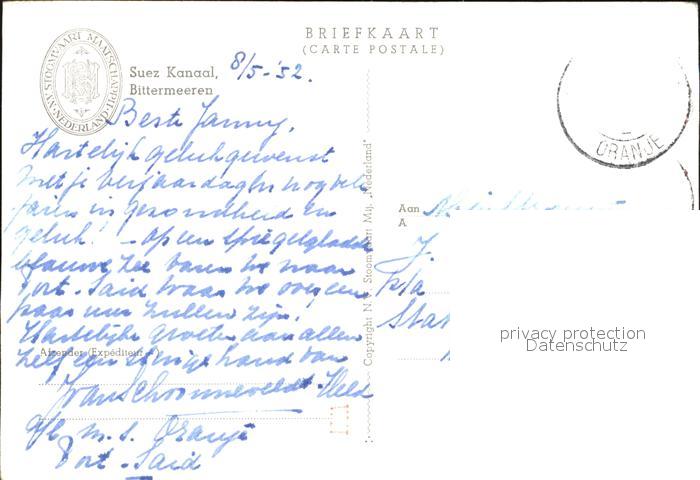 BRIEFKAART
(CARTE POSTALE)
N.V. STOOMVAART MAATSCHAPPIJ "NEDERLAND"
Suez Kanaal, 8/5-'52.
Bittermeeren
Beste Janny,
Hartelijk gelukgewenst
met je verjaardag en nog vele
jaren in gezondheid en
geluk! - Op een spiegelgladde
blauwe zee varen we naar
Port-Said waar we over een
paar uur zullen zijn.
Hartelijke groeten aan allen
Afzender (Expéditeur)
zelf een stevige hand van
a/b m.s. Oranje
Port-Said
Copyright N.V. Stoomvaart Mij. „Nederland"
ORANJE
Aan
A
J.
p/a
Stat
privacy protection
Datenschutz